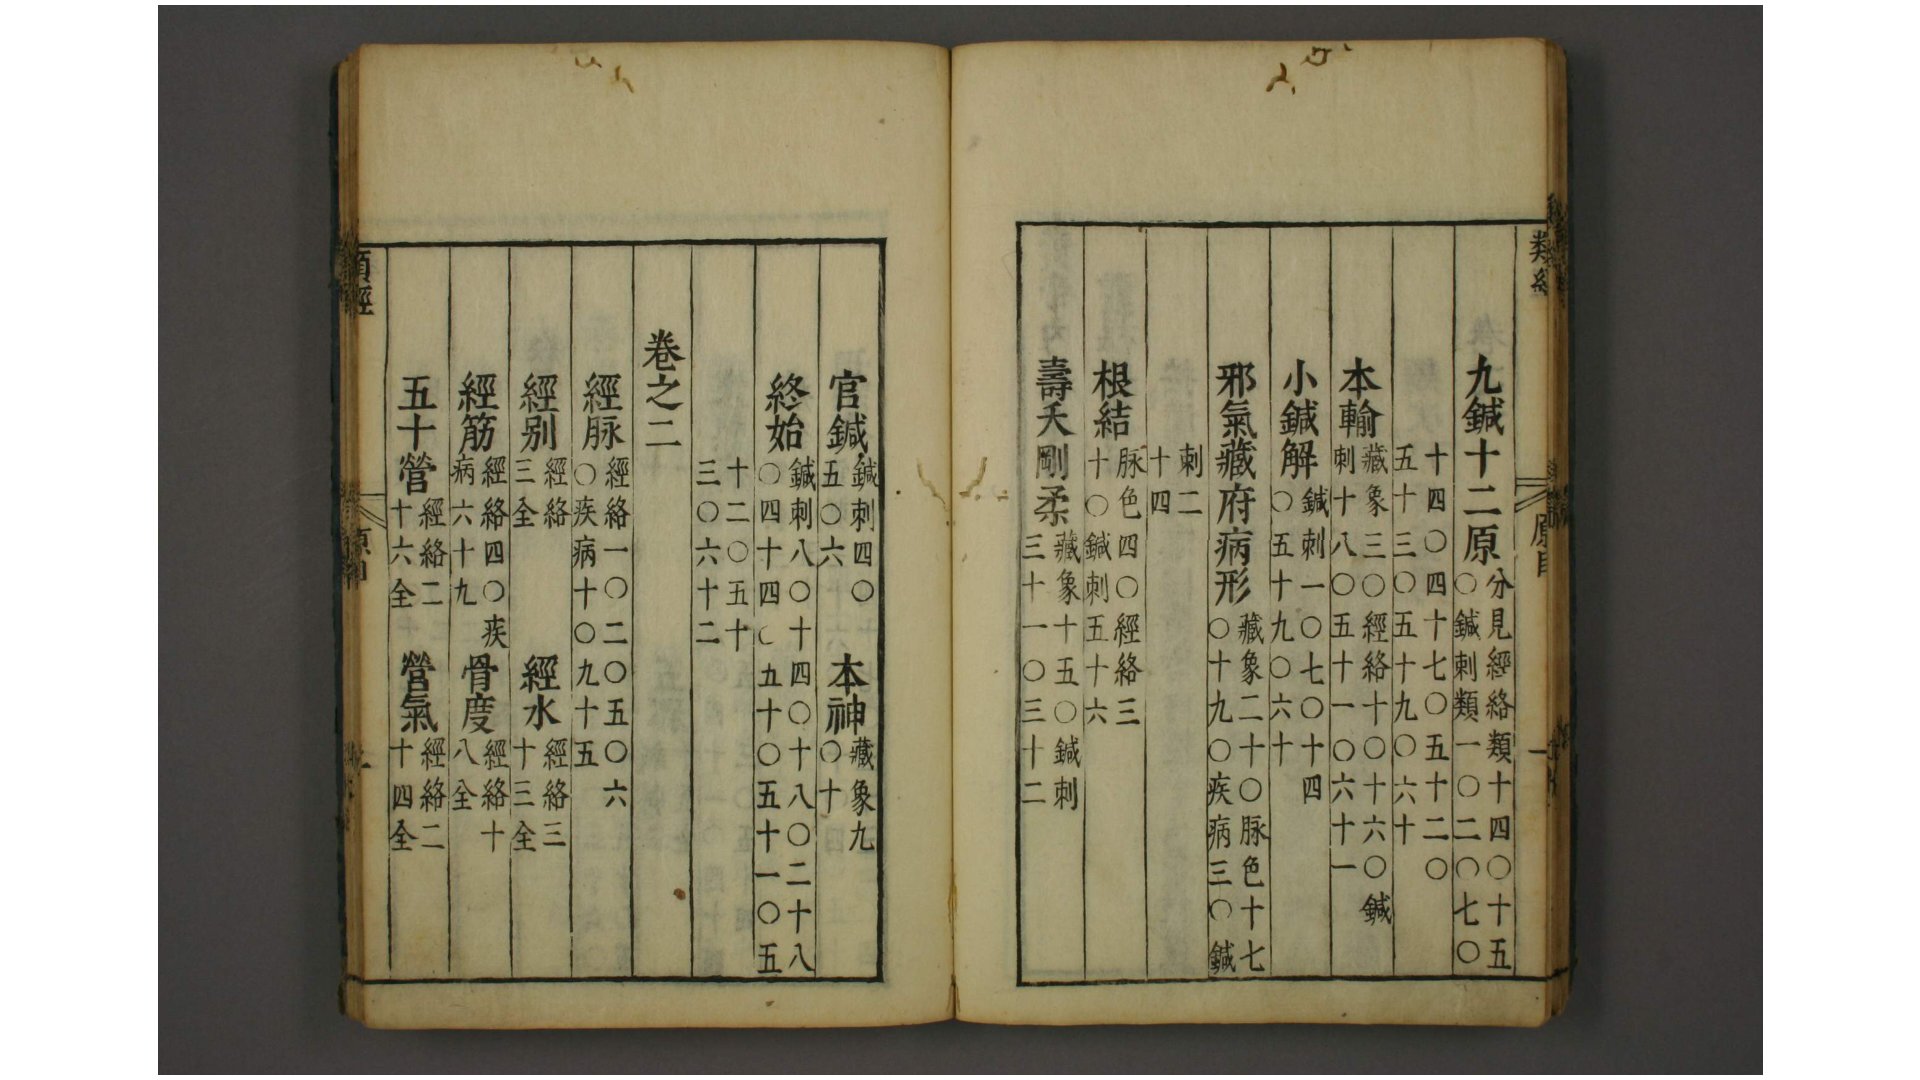 類經
原目
一
九鍼十二原
分見經絡類十四〇十五
〇鍼刺類一〇二〇七〇
十四〇四十七〇五十二〇
五十三〇五十九〇六十
本輸
藏象三〇經絡十〇十六〇鍼
刺十八〇五十一〇六十一
小鍼解
鍼刺一〇七〇十四
〇五十九〇六十
邪氣藏府病形
藏象二十〇脉色十七
〇十九〇疾病三〇鍼
刺二
十四
根結
脉色四〇經絡三
十〇鍼刺五十六
壽夭剛柔
藏象十五〇鍼刺
三十一〇三十二
官鍼
鍼刺四〇
五〇六
本神
藏象九
〇十
終始
鍼刺八〇十四〇十八〇二十八
〇四十四〇五十〇五十一〇五
十二〇五十
三〇六十二
卷之二
經脉
經絡一〇二〇五〇六
〇疾病十〇九十五
經别
經絡
三全
經水
經絡三
十三全
經筋
經絡四〇疾
病六十九
骨度
經絡十
八全
五十營
經絡二
十六全
營氣
經絡二
十四全
類經